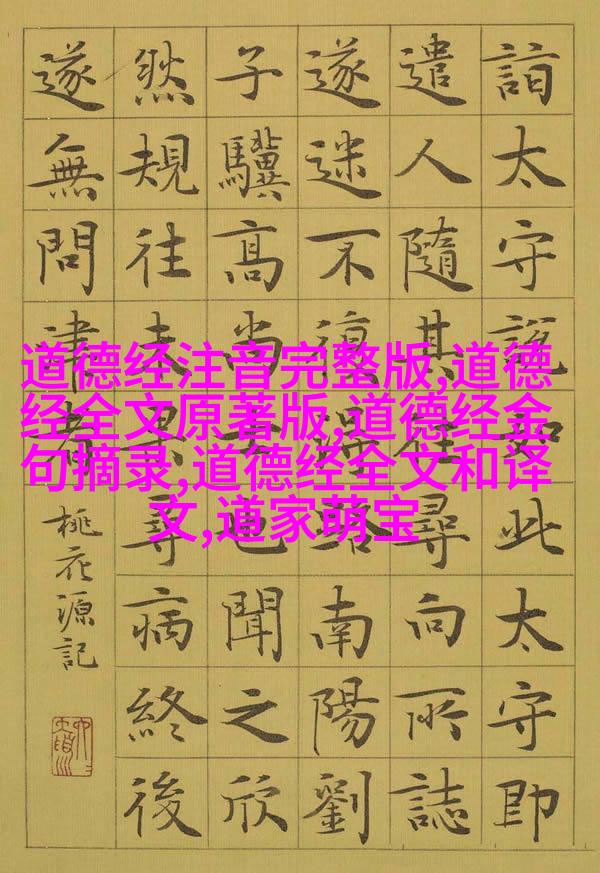 詣太守說如此太守即
遣人隨其往尋向所誌
遂迷不復得路南陽劉
子驥高尚士也聞之欣
然規往未果尋病終後
遂無問津者
桃花源記
道德经注音完整版,道德
经全文原著版,道德经金
句摘录,道德经全文和译
文,道家萌宝